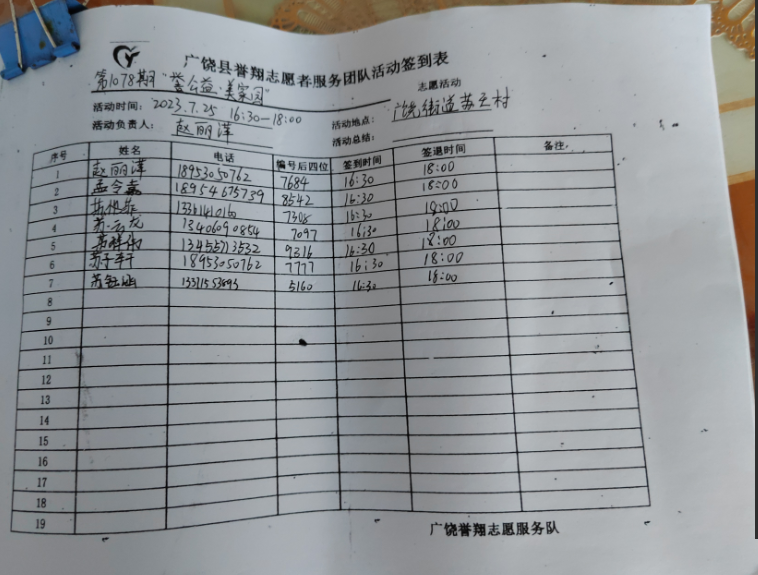 广饶县誉翔志愿者服务团队活动签到表
第1078期"誉公益·美家园" 志愿活动
活动时间: 2023.7.25 16:30-18:00 活动地点: 广饶街道苏三村
活动负责人: 赵丽萍 活动总结:
序号 姓名 电话 编号后四位 签到时间 签退时间 备注
1 赵丽萍 18953050762 7684 16:30 18:00
2 孟令嘉 18954675739 8542 16:30 18:00
3 7308 16:30 18:00
4 苏云龙 13406090854 7097 16:30 18:00
5 9216 16:30 18:00
6 18953050762 7777 16:30 18:00
7 苏钰涵 5160 16:30 18:00
8
9
10
11
12
13
14
15
16
17
18
19
广饶誉翔志愿服务队